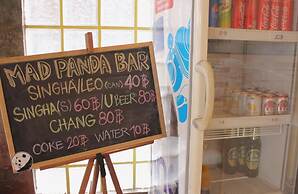 MAD PANDA BAR
SINGHA/LEO (CAN) 40฿
SINGHA(S) 60฿/U BEER 80฿
CHANG 80฿
COKE 20฿ WATER 10฿